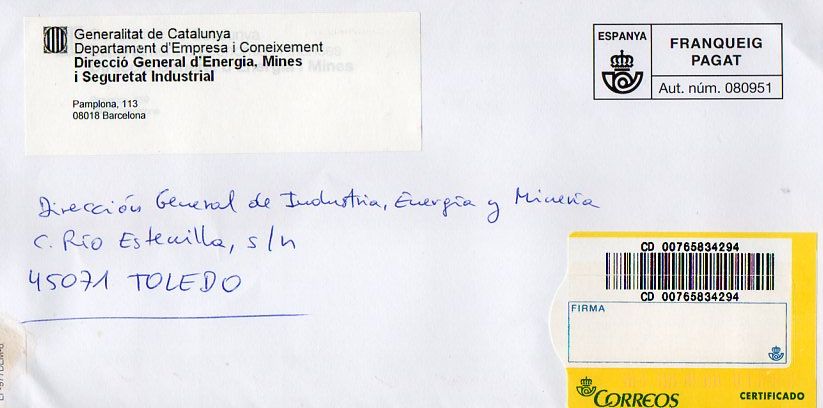 Generalitat de Catalunya
Departament d'Empresa i Coneixement
Direcció General d'Energia, Mines
i Seguretat Industrial
Pamplona, 113
08018 Barcelona
ESPANYA
FRANQUEIG
PAGAT
Aut. núm. 080951
Dirección General de Industria, Energía y Minería
C. Río Estenilla, s/n
45071 TOLEDO
CD 00765834294
CD 00765834294
FIRMA
CORREOS
CERTIFICADO